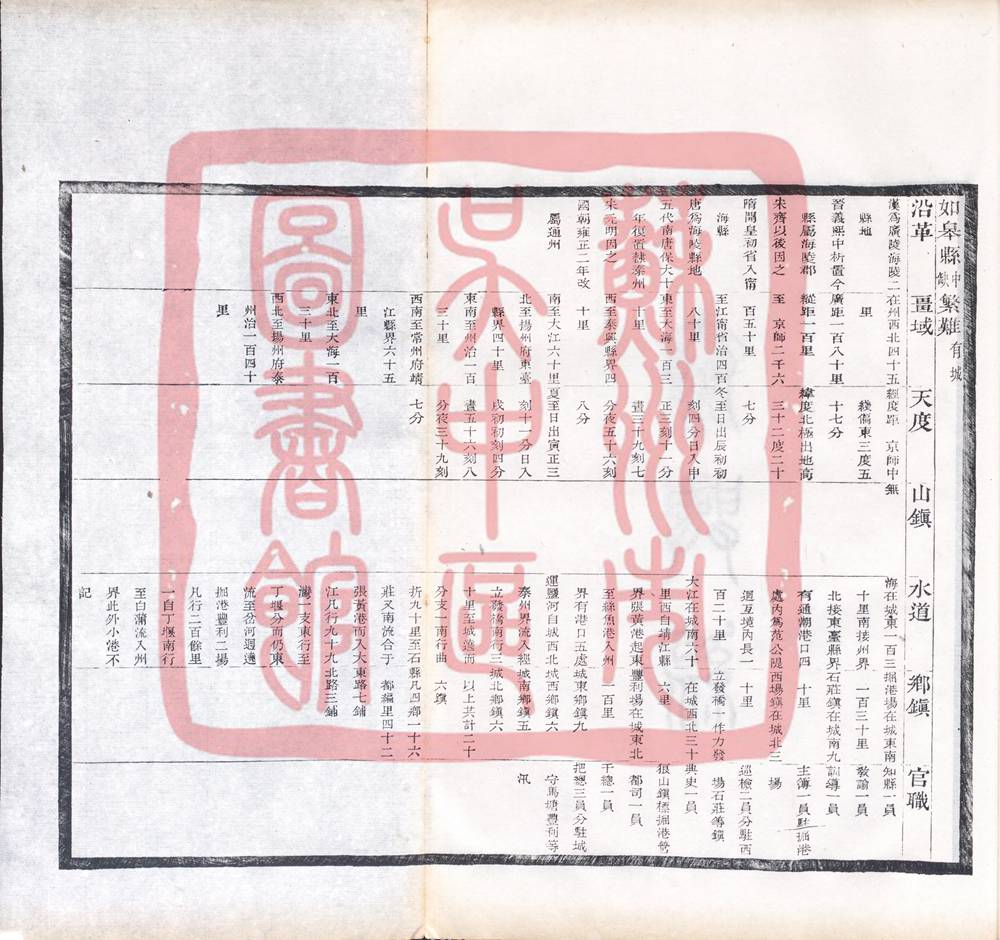 如皋縣 中缺 繁難 有城
沿革
漢為廣陵海陵二
縣地
晉義熙中析置今
縣屬海陵郡
宋齊以後因之
隋開皇初省入甯
海縣
唐為海陵縣地
五代南唐保大十
年復置隸泰州
宋元明因之
國朝雍正二年改
屬通州
畺域
在州西北四十五
里
廣距一百八十里
縱距一百里
至 京師二千六
百五十里
至江甯省治四百
八十里
東至大海一百三
十里
西至泰興縣界四
十里
南至大江六十里
北至揚州府東臺
縣界四十里
東南至州治一百
三十里
西南至常州府靖
江縣界六十五
里
東北至大海一百
三十里
西北至揚州府泰
州治一百四十
里
天度
經度距 京師中
綫偏東三度五
十七分
緯度北極出地高
三十二度二十
七分
冬至日出辰初初
刻四分日入申
正三刻十一分
晝三十九刻七
分夜五十六刻
八分
夏至日出寅正三
刻十一分日入
戌初初刻四分
晝五十六刻八
分夜三十九刻
七分
山鎮
無
水道
海在城東一百三
十里南接州界
北接東臺縣界
有通潮港口四
處內為范公隄
迴互境內長一
百二十里
大江在城南六十
里西自靖江縣
界張黃港起東
至絲魚港入州
界有港口五處
運鹽河自城西北
泰州界流入經
立發橋南行三
十里至城遶而
分支一南行曲
折九十里至石
莊又南流合于
張黃港而入大
江凡行九十九
灣一支東行至
丁堰分而仍東
流至岔河迴遶
掘港豐利二場
凡行二百餘里
一自丁堰南行
至白蒲流入州
界此外小港不
記
鄉鎮
掘港場在城東南
一百三十里
石莊鎮在城南九
十里
西場鎮在城北三
十里
立發橋一作力發
在城西北三十
六里
豐利場在城東北
一百里
城東鄉鎮九
城西鄉鎮六
城南鄉鎮五
城北鄉鎮六
以上共計二十
六鎮
縣凡四鄉一十六
都編里四十二
東路七鋪
北路三鋪
官職
知縣一員
教諭一員
訓導一員
主簿一員駐掘港
場
巡檢二員分駐西
場石莊等鎮
典史一員
狼山鎮標掘港營
都司一員
千總一員
把總三員分駐城
守馬塘豐利等
汛
蘇州市
吳中區
圖書館